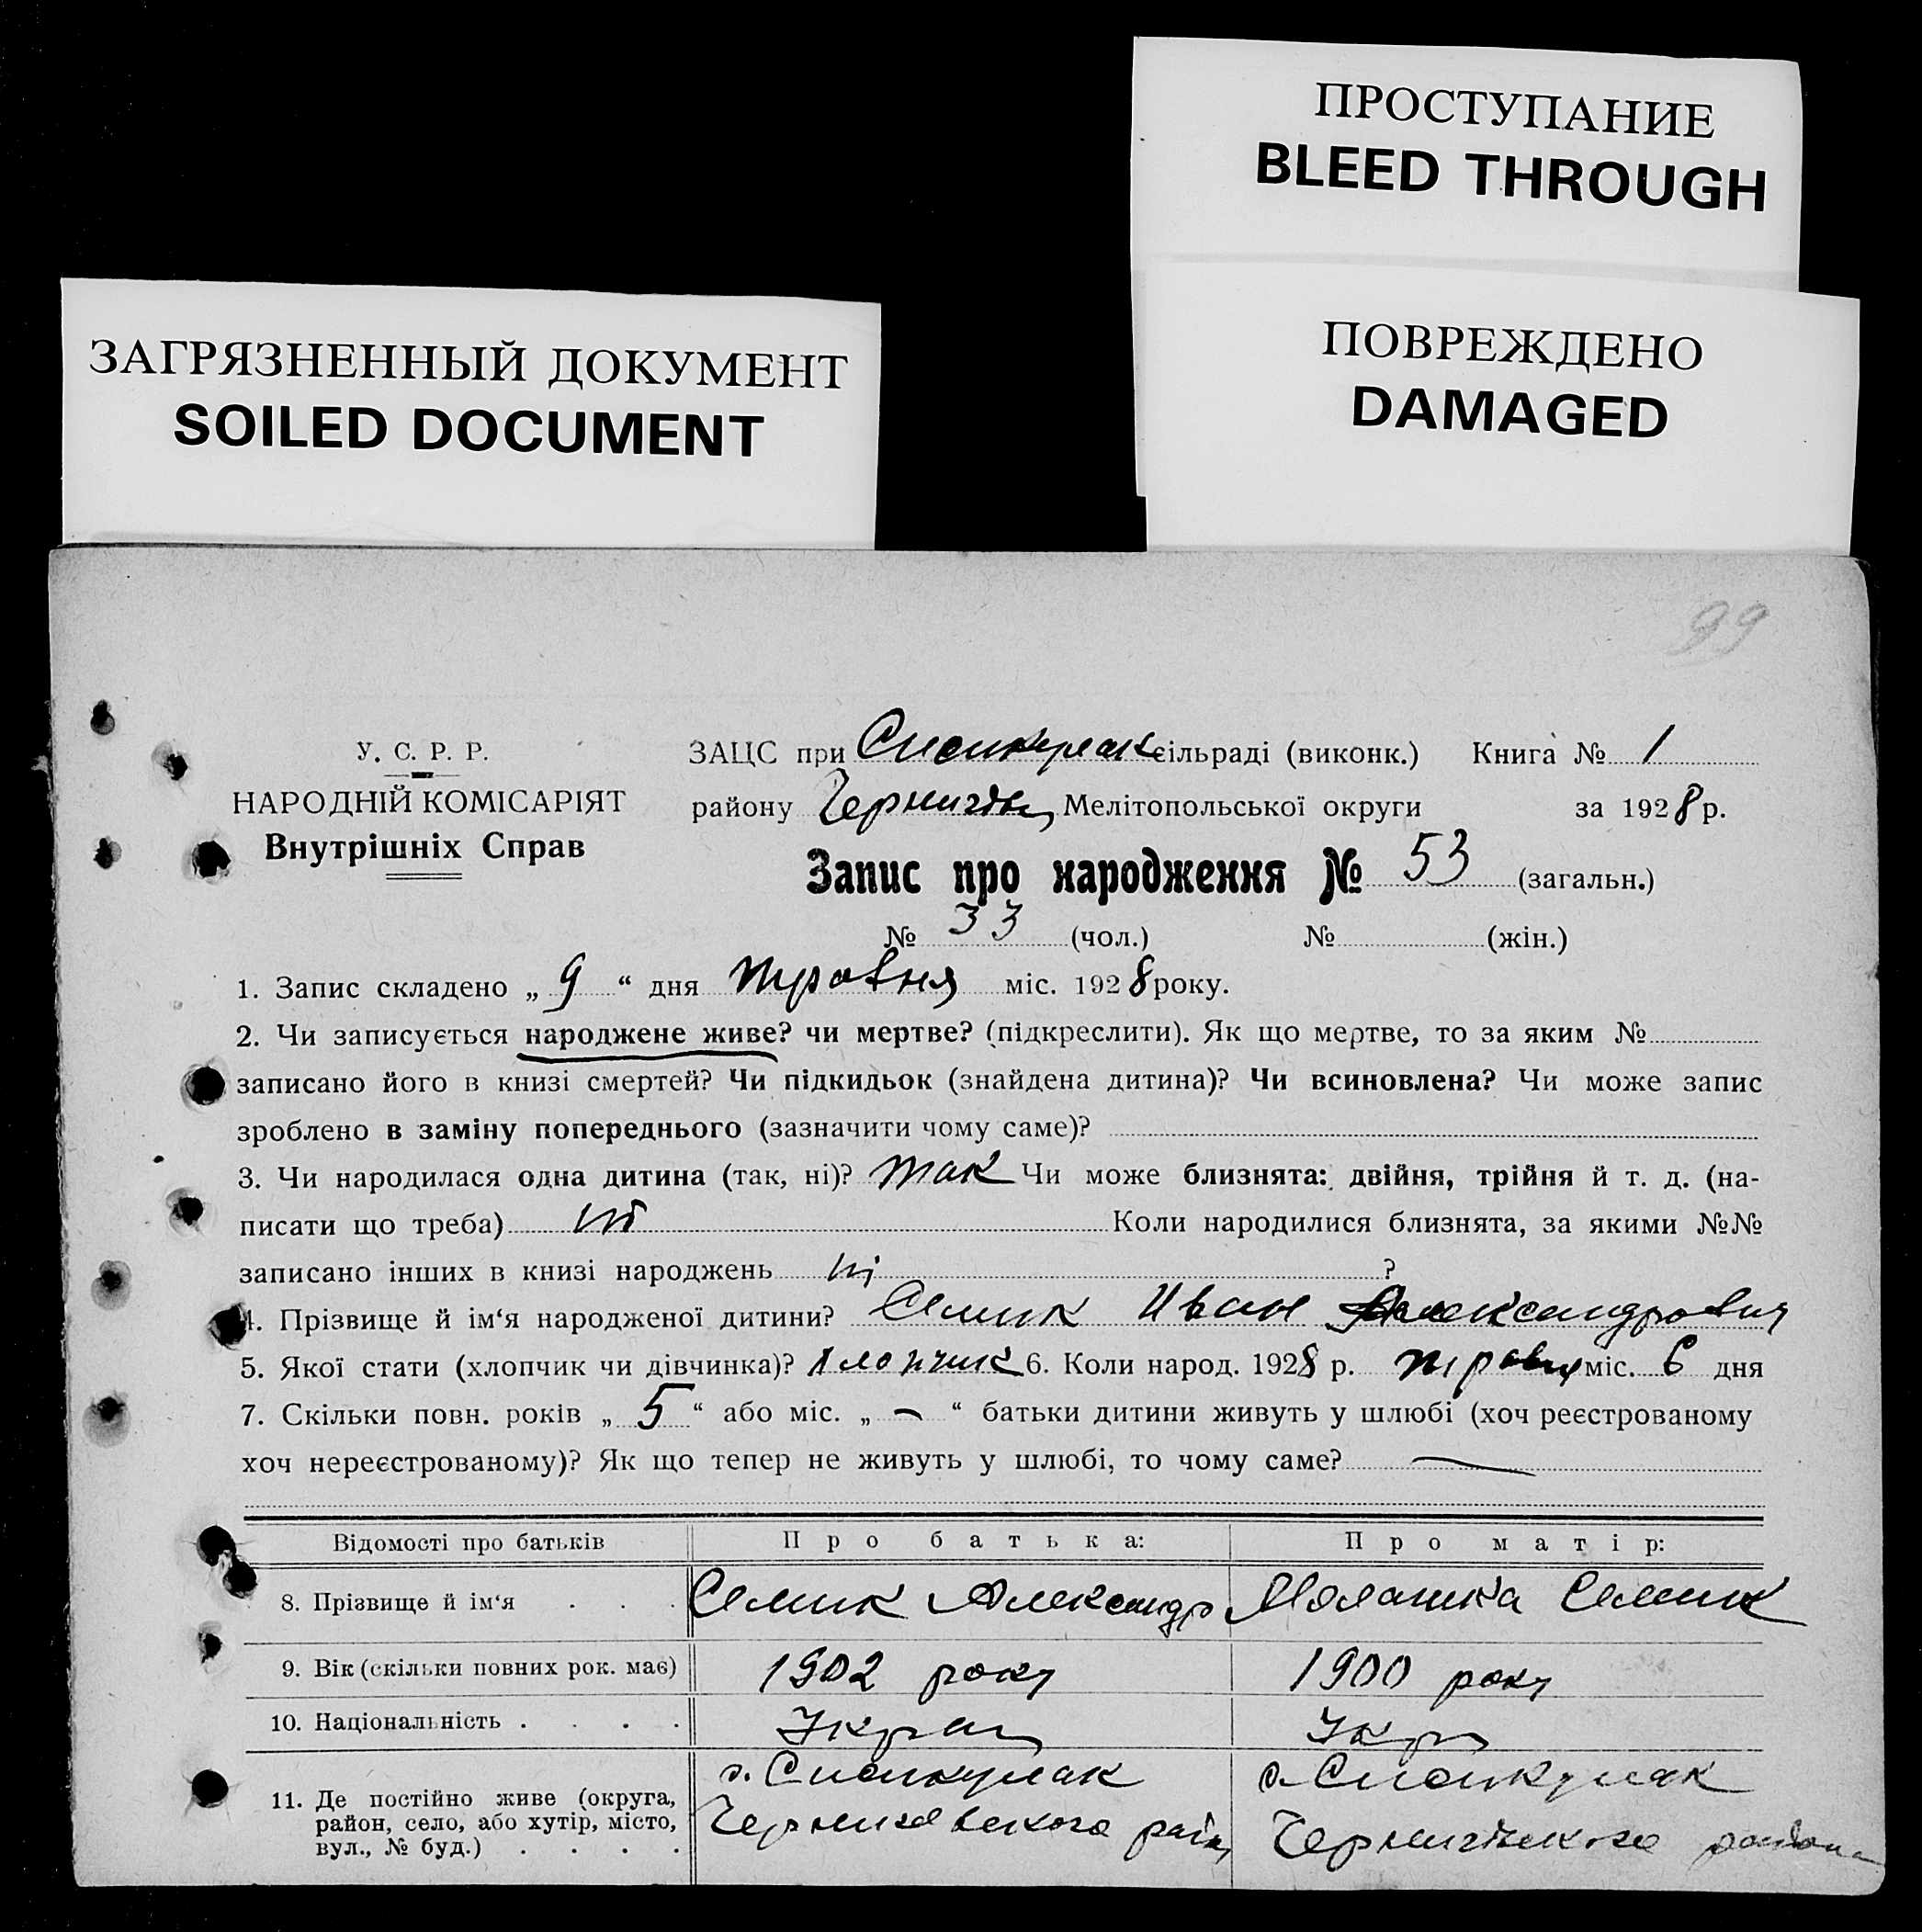 ПРОСТУПАНИЕ
BLEED THROUGH
ЗАГРЯЗНЕННЫЙ ДОКУМЕНТ
SOILED DOCUMENT
ПОВРЕЖДЕНО
DAMAGED
99
У. С. Р. Р.
НАРОДНІЙ КОМІСАРІЯТ
Внутрішніх Справ
ЗАЦС при сільраді (виконк.) Книга № 1
району Чернигів Мелітопольської округи за 1928 р.
Запис про народження № 53 (загальн.)
№ 33 (чол.) № (жін.)
1. Запис складено „ 9 “ дня травня міс. 1928 року.
2. Чи записується народжене живе? чи мертве? (підкреслити). Як що мертве, то за яким №
записано його в книзі смертей? Чи підкидьок (знайдена дитина)? Чи всиновлена? Чи може запис
зроблено в заміну попереднього (зазначити чому саме)?
3. Чи народилася одна дитина (так, ні)? так Чи може близнята: двійня, трійня й т. д. (на-
писати що треба) ні Коли народилися близнята, за якими №№
записано інших в книзі народжень ні ?
4. Прізвище й ім‘я народженої дитини? Семик Иван Александрович
5. Якої стати (хлопчик чи дівчинка)? хлопчик 6. Коли народ. 1928 р. травня міс. 6 дня
7. Скільки повн. років „ 5 “ або міс. „ — “ батьки дитини живуть у шлюбі (хоч реєстрованому
хоч нереєстрованому)? Як що тепер не живуть у шлюбі, то чому саме? —
Відомості про батьків Про батька: Про матір:
8. Прізвище й ім‘я . . . Семик Александр Малашка Семик
9. Вік (скільки повних рок. має) 1902 року 1900 року
10. Національність . . . . Украш Укр
11. Де постійно живе (округа,
район, село, або хутір, місто,
вул., № буд.) . . . .
с.
Черниговского район
с.
Чернигівского района